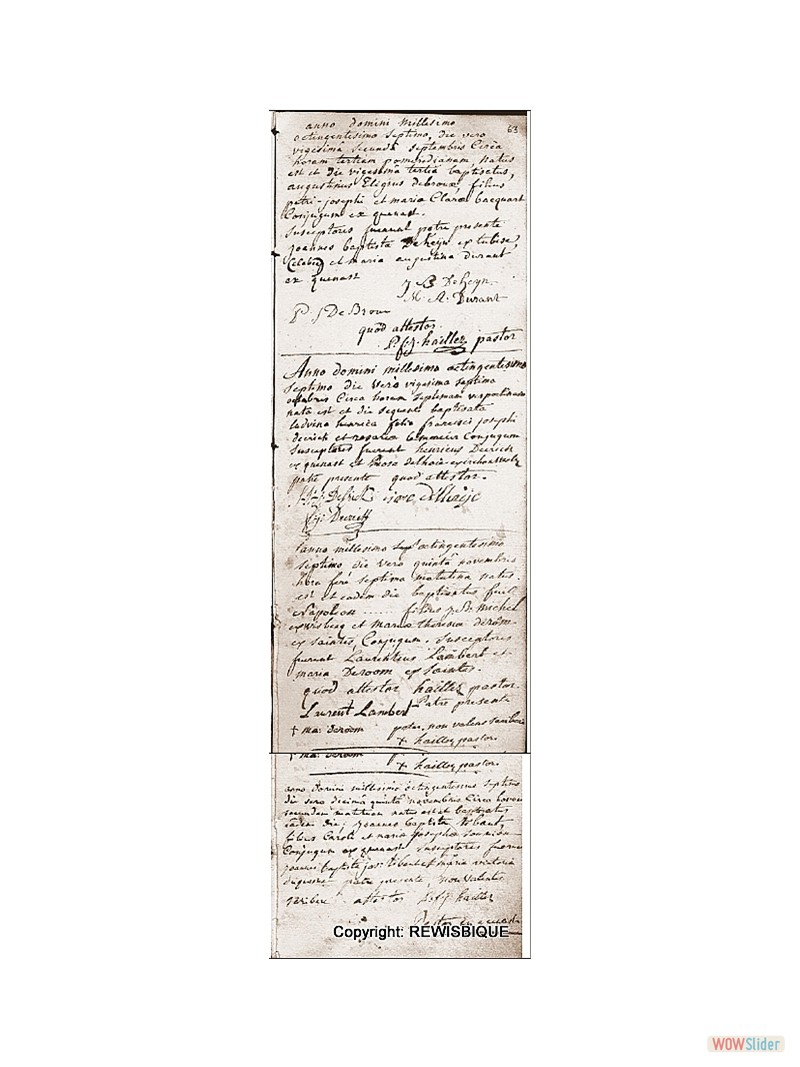 63
anno domini Millesimo
octingentesimo septimo, die vero
vigesimâ secundâ septembris Circa
horam tertiam pomeridianam, natus
est et die vigesimâ tertiâ baptisatus,
augustinus Eligius debroux, filius
petri-josephi et maria Clara bacquart
Conjugum ex quenast.
susceptores fuerunt patre presente
joannes baptista Deheyn ex tubise,
et maria augustina durant
ex quenast
J B DeHeyn.
M. A. Durant
P. J De Broux
quod attestor.
P. f. J. haillez pastor
Anno domini millesimo octingentesimo
septimo die vero vigesima septima
octobris Circa horam septimam vespertinam
nata est et die sequenti baptisata
ludvina henrica filia francisci josephi
derick et rosaria Conjugum
susceptores fuerunt henricus Derick
ex quenast et
patre presente quod attestor.
Derick
anno millesimo octingentesimo
septimo die vero quintâ novembris
hora ferè septima matutina natus
est et eadem die baptisatus fuit
Napoleon ...... filius j. B. michel
et Maria theresia derôme
ex saintes, Conjugum. Susceptores
fuerunt Laurentius Lambert et
maria Deroom ex saintes.
quod attestor haillez pastor.
Lurent Lambert Patre presente
† ma: deroom pater non valens scribere
† haillez pastor.
† ma: deroom
† haillez pastor.
anno domini millesimo octingentesimo septimo
die vero decima quinta novembris Circa horam
secundam matutinam natus est et baptisatus
eâdem die: joannes baptista Tibaut,
filius Caroli et maria josepha
Conjugum ex quenast Susceptores fuerunt
joannes baptista jos: tibaut et maria victoria
patre presente, non valentes
scribere attestor P. f. J haillez
Pastor in
Copyright: REWISBIQUE
WOWSlider